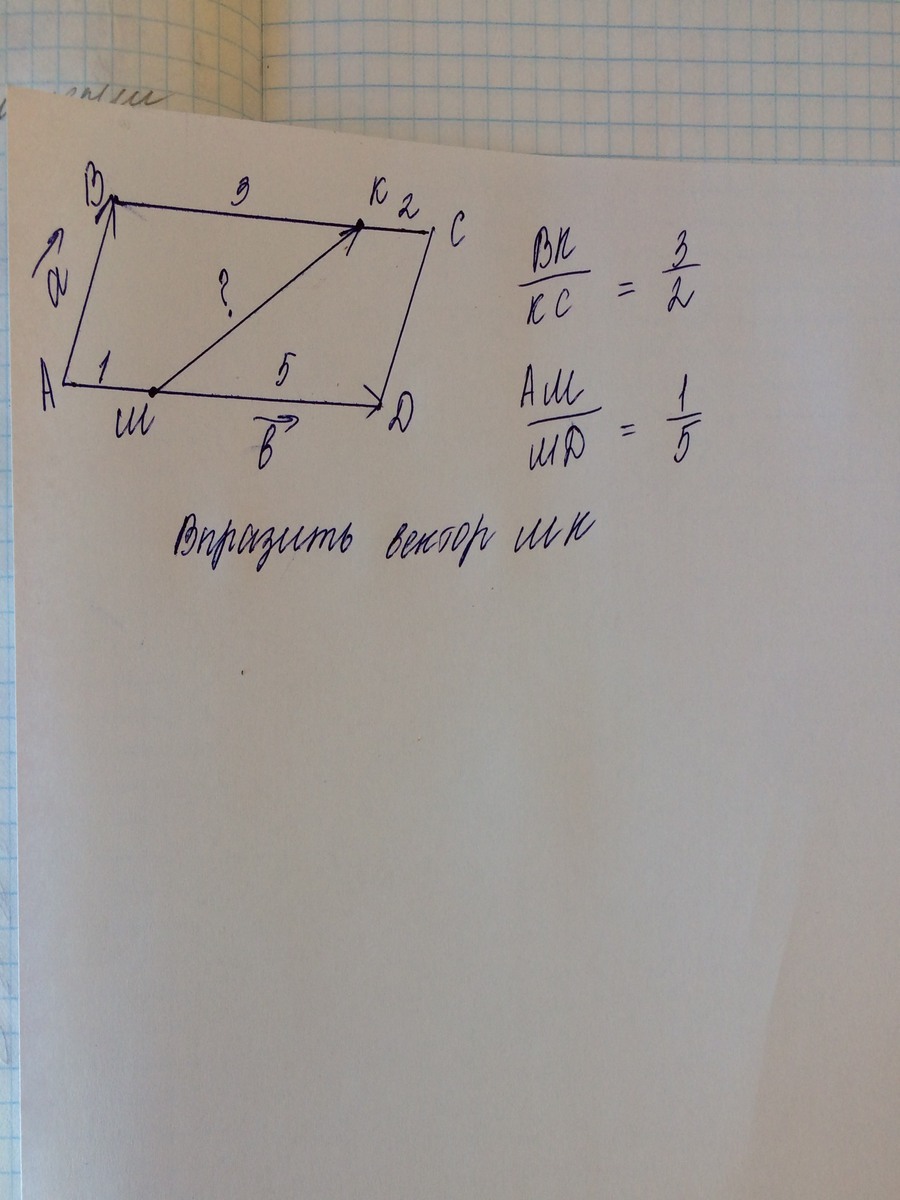 B 3 K 2 C
a
?
A 1 M 5 D
b
BK/KC = 3/2
AM/MD = 1/5
Впразить вектор MK